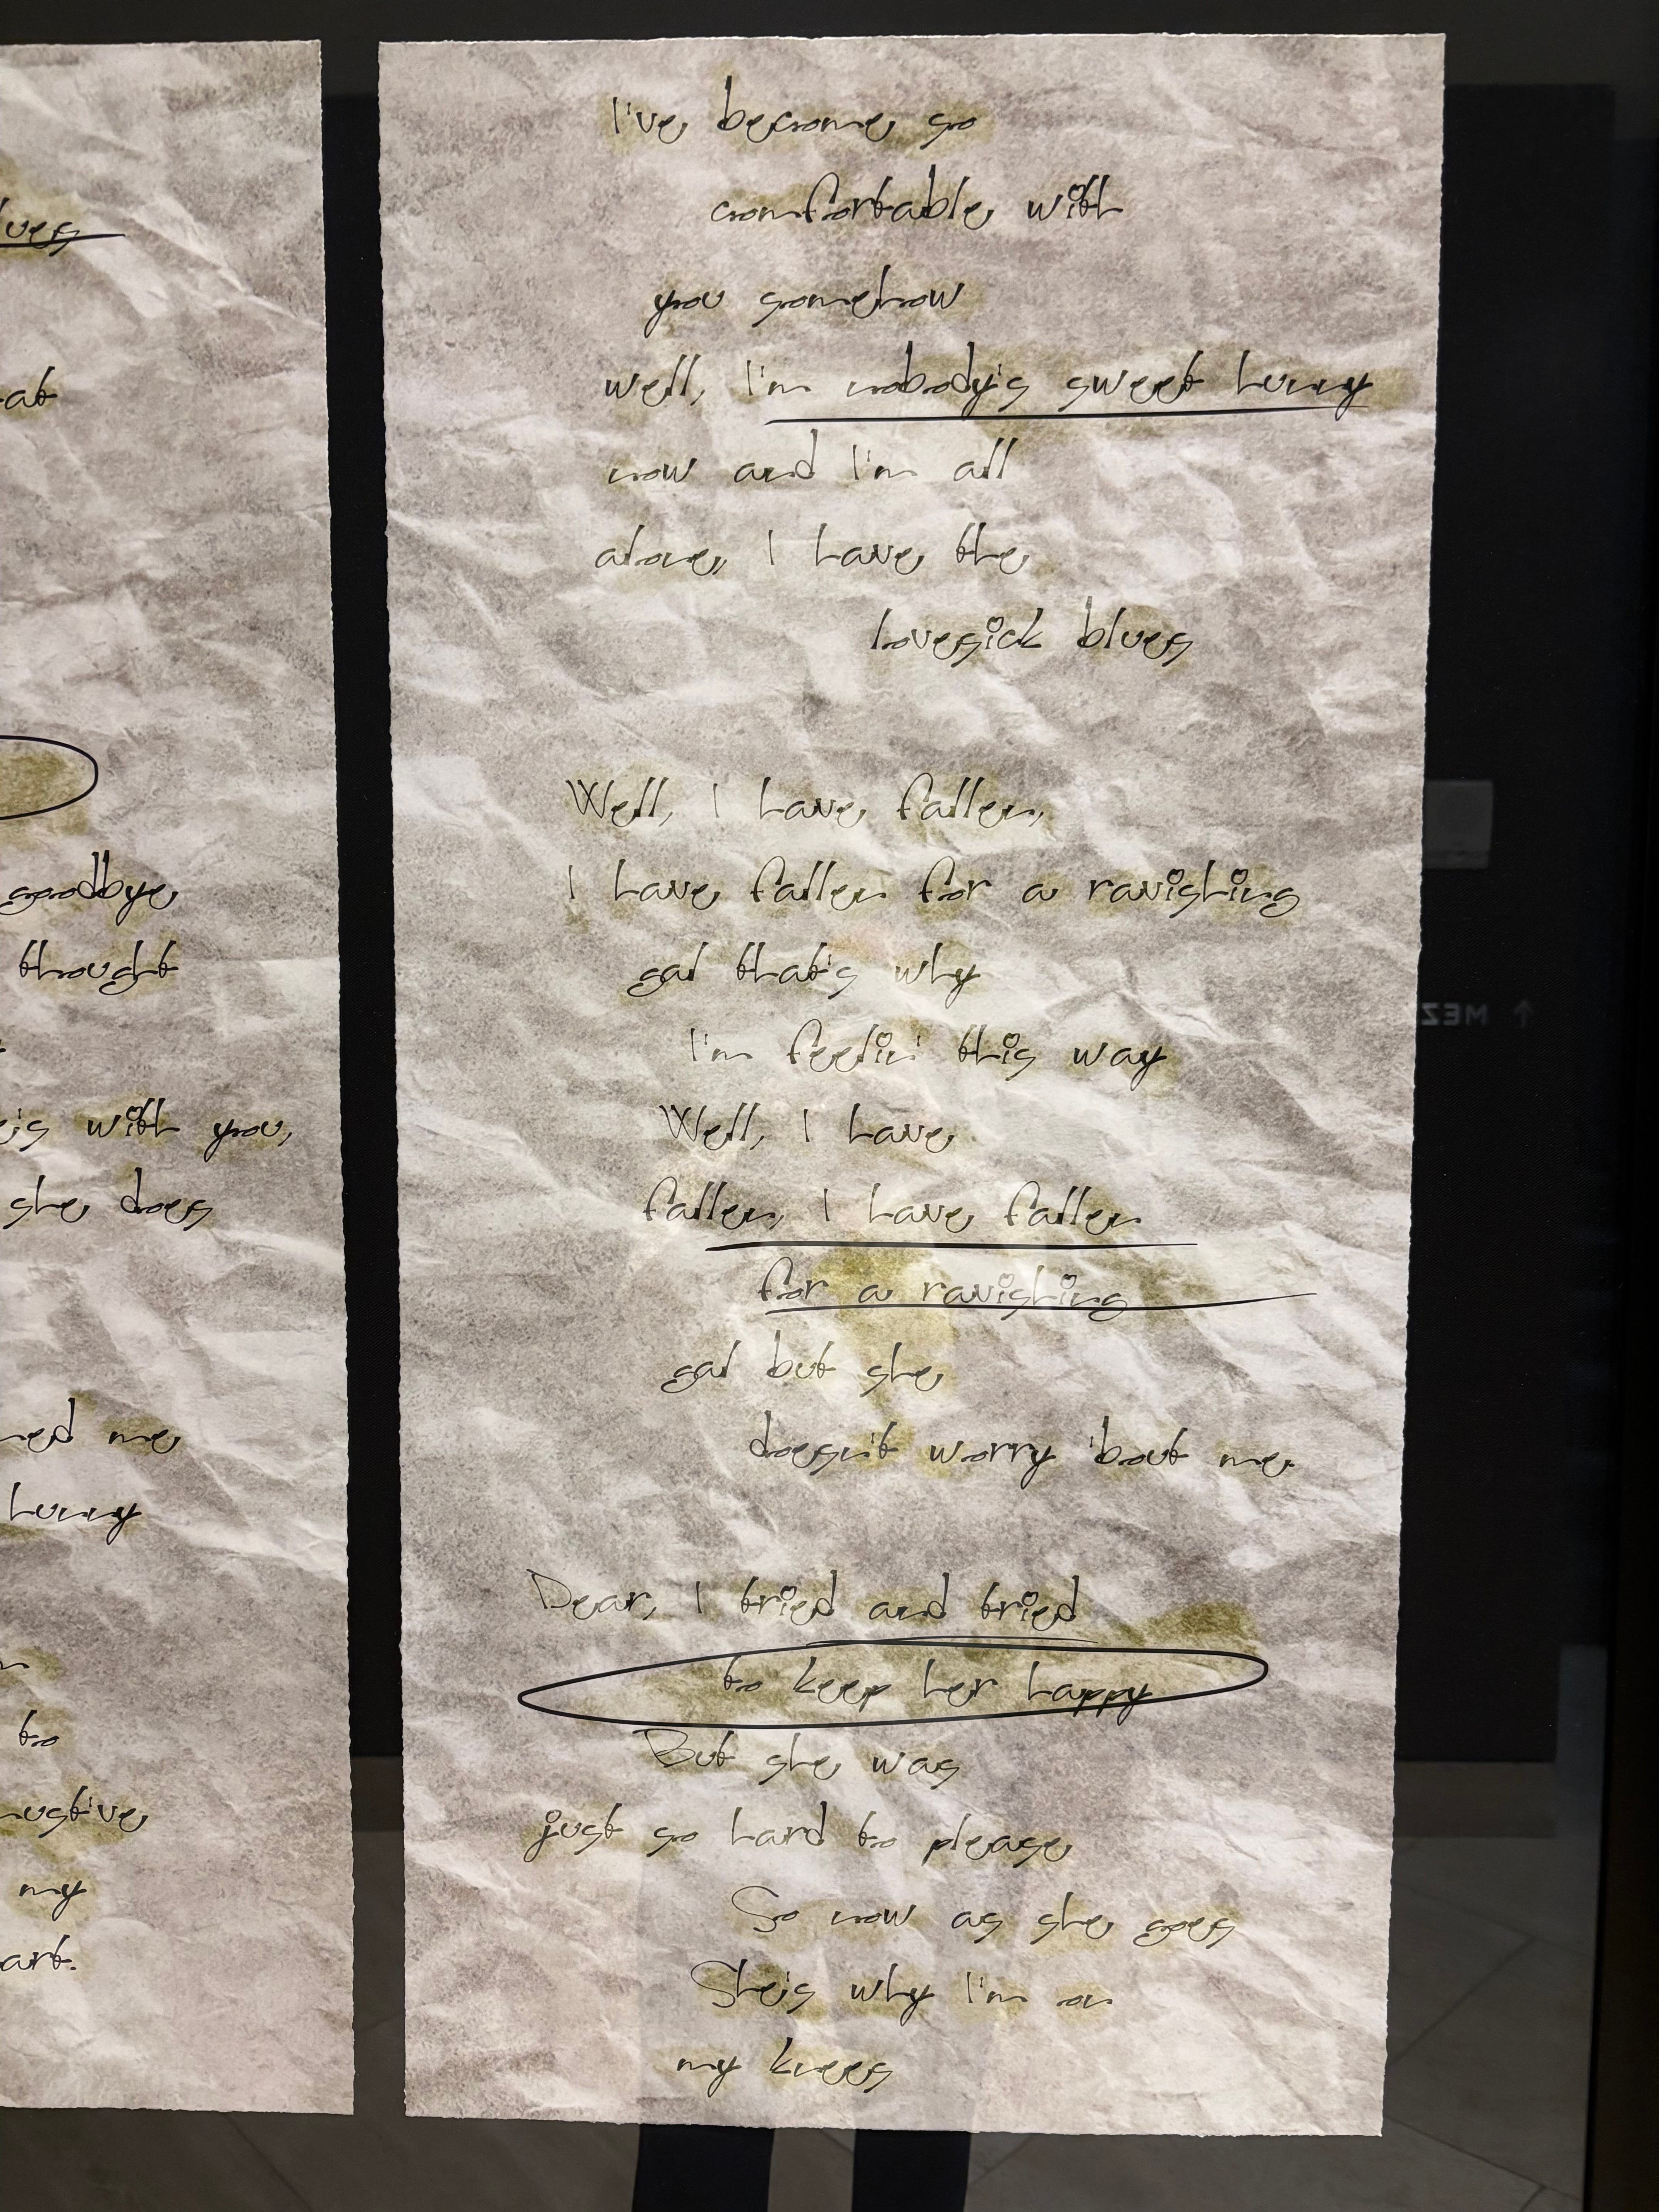 lves
at
goodbye
thought
e's with you,
she does
ned me
hunny
to
must've
my
art.
I've become so
comfortable with
you somehow
well, I'm nobody's sweet hunny
now and I'm all
alone, I have the
lovesick blues
Well, I have fallen,
I have fallen for a ravishing
gal that's why
I'm feelin' this way
Well, I have
fallen, I have fallen
for a ravishing
gal but she
doesn't worry 'bout me.
Dear, I tried and tried
to keep her happy
But she was
just so hard to please
So now as she goes
She's why I'm on
my knees
↑ MEZ